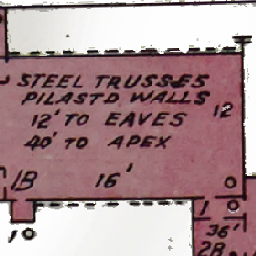 STEEL TRUSSES
PILAST'D WALLS
12' TO EAVES 12
40' TO APEX
1B 16'
1
1
36'
2B